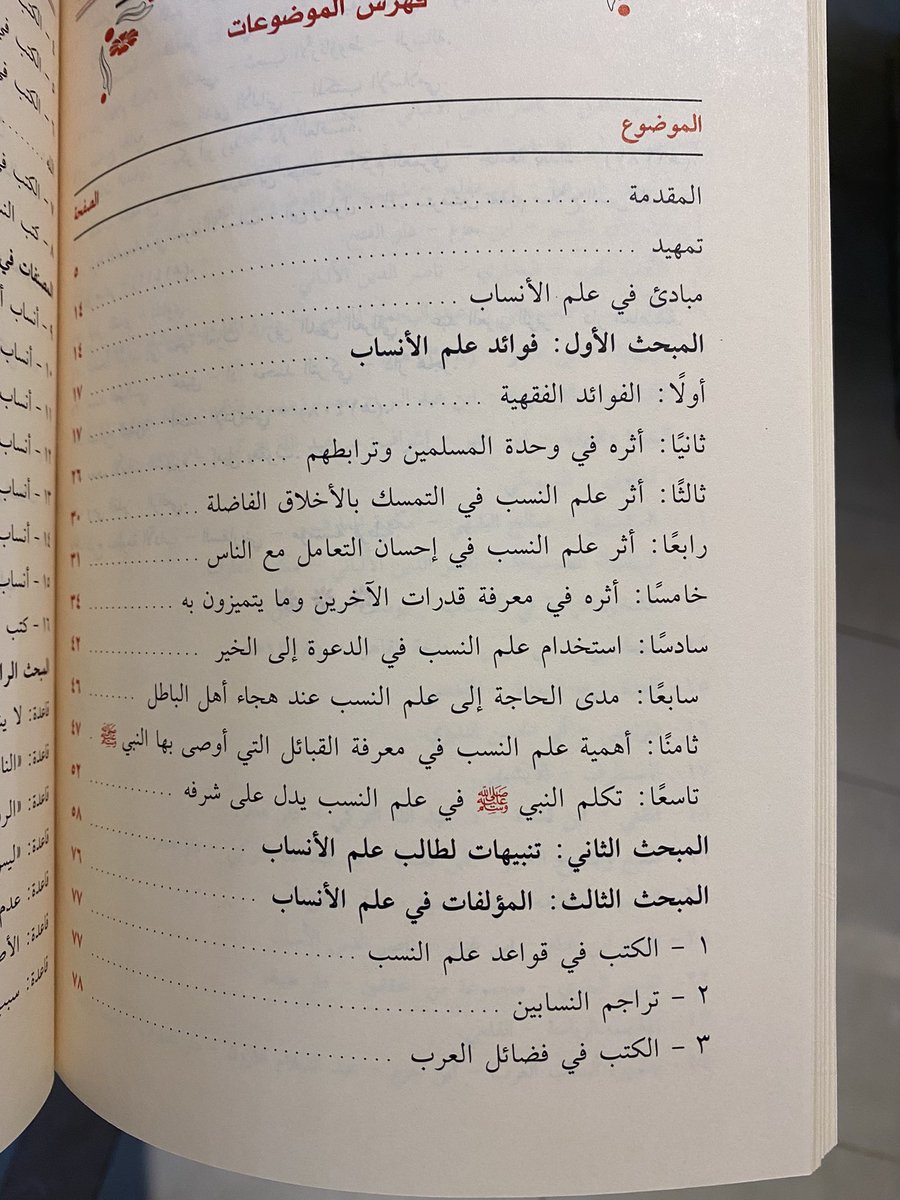 فهرس الموضوعات
الموضوع الصفحة
المقدمة ٥
تمهيد ١٤
مبادئ في علم الأنساب ١٤
المبحث الأول: فوائد علم الأنساب ١٧
أولًا: الفوائد الفقهية ١٧
ثانيًا: أثره في وحدة المسلمين وترابطهم ٢٦
ثالثًا: أثر علم النسب في التمسك بالأخلاق الفاضلة ٣٠
رابعًا: أثر علم النسب في إحسان التعامل مع الناس ٣١
خامسًا: أثره في معرفة قدرات الآخرين وما يتميزون به ٣٤
سادسًا: استخدام علم النسب في الدعوة إلى الخير ٤٢
سابعًا: مدى الحاجة إلى علم النسب عند هجاء أهل الباطل ٤٦
ثامنًا: أهمية علم النسب في معرفة القبائل التي أوصى بها النبي ﷺ ٤٧
تاسعًا: تكلم النبي ﷺ في علم النسب يدل على شرفه ٥٢
المبحث الثاني: تنبيهات لطالب علم الأنساب ٥٨
المبحث الثالث: المؤلفات في علم الأنساب ٧٦
١ - الكتب في قواعد علم النسب ٧٧
٢ - تراجم النسابين ٧٧
٣ - الكتب في فضائل العرب ٧٨